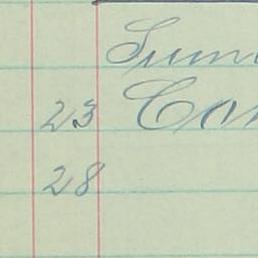 Sum
23 Con
28